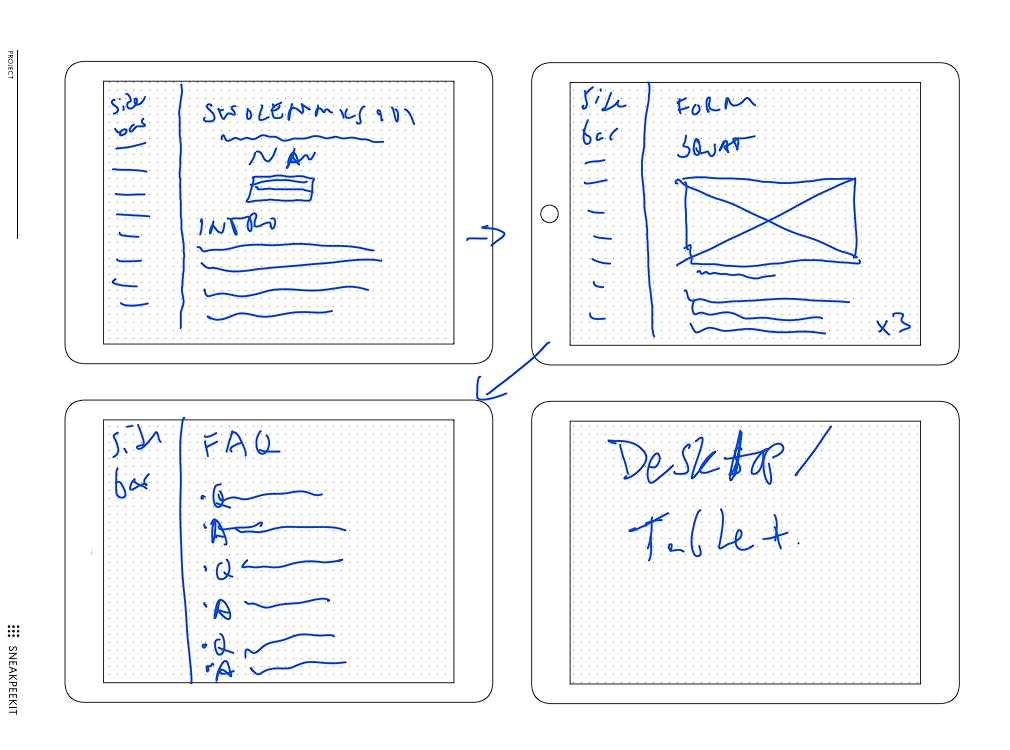 PROJECT
Side
bar
NAV
INTRO
Side
bar
FORM
SQUAT
x3
Side
bar
FAQ
Q
A
Q
A
Q
A
Desktop/
Tablet.
SNEAKPEEKIT